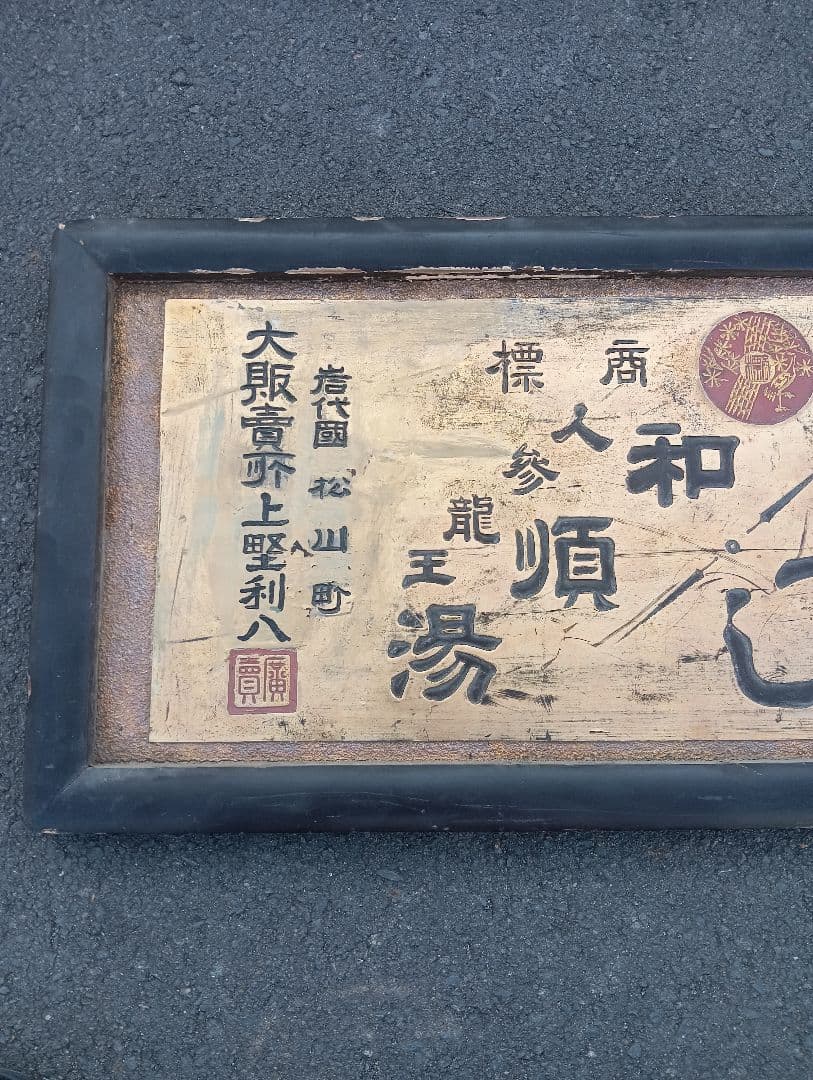 商標
和順湯
人參
龍王
岩代國 松川町
大販賣所 上野利八
廣賣